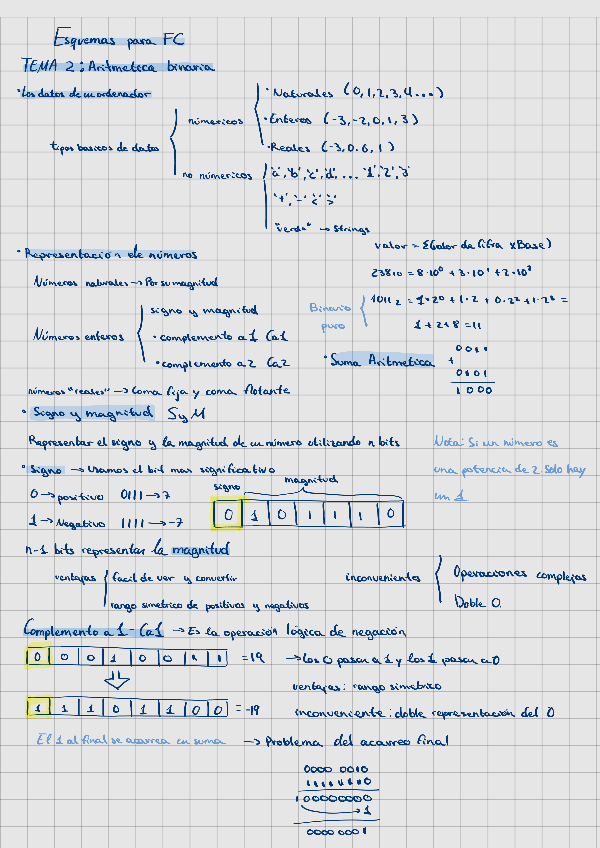 Esquemas para FC
TEMA 2: Aritmetica binaria
· Los datos de un ordenador
tipos basicos de datos
númericos
· Naturales (0,1,2,3,4...)
· Enteros (-3,-2,0,1,3)
· Reales (-3,0.6,1)
no númericos
'a','b','c','d',... '1','2','3'
'+','-','<','>'
"verde" → Strings
· Representación de números
Números naturales → Por su magnitud
Números enteros
signo y magnitud
· complemento a 1 Ca1
· complemento a 2 Ca2
números "reales" → Coma fija y coma flotante
valor = Σ(valor de cifra x Base)
238₁₀ = 8·10⁰ + 3·10¹ + 2·10²
Binario puro
1011₂ = 1·2⁰ + 1·2 + 0·2² + 1·2³ =
1+2+8=11
· Suma Aritmetica
0011
+
0101
1000
· Signo y magnitud SyM
Representar el signo y la magnitud de un número utilizando n bits
Nota: Si un número es
una potencia de 2 solo hay
un 1
· Signo → Usamos el bit mas significativo
0 → positivo 0111 → 7
1 → Negativo 1111 → -7
signo magnitud
0 1 0 1 1 1 1 0
n-1 bits representar la magnitud
ventajas
facil de ver y convertir
rango simetrico de positivos y negativos
inconvenientes
Operaciones complejas
Doble 0
Complemento a 1 - Ca1 → Es la operación lógica de negación
0 0 0 1 0 0 1 1 = 19 → Los 0 pasan a 1 y los 1 pasan a 0
ventajas: rango simetrico
1 1 1 0 1 1 0 0 = -19 inconveniente: doble representación del 0
El 1 al final se acarrea en suma → Problema del acarreo final
0000 0010
100000000
1
0000 0001